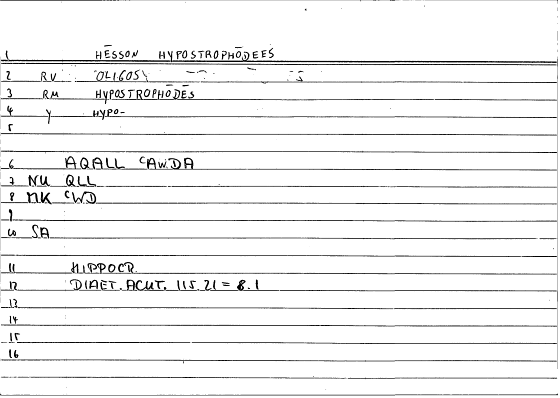 1 HĒSSON HYPOSTROPHŌDEES
2 RV OLIGOS
3 RM HYPOSTROPHŌDĒS
4 Y HYPO-
5
6 AQALL ᶜAWDA
7 NU QLL
8 MK ᶜWD
9
10 SA
11 HIPPOCR.
12 DIAET. ACUT. 115.21 = 8.1
13
14
15
16